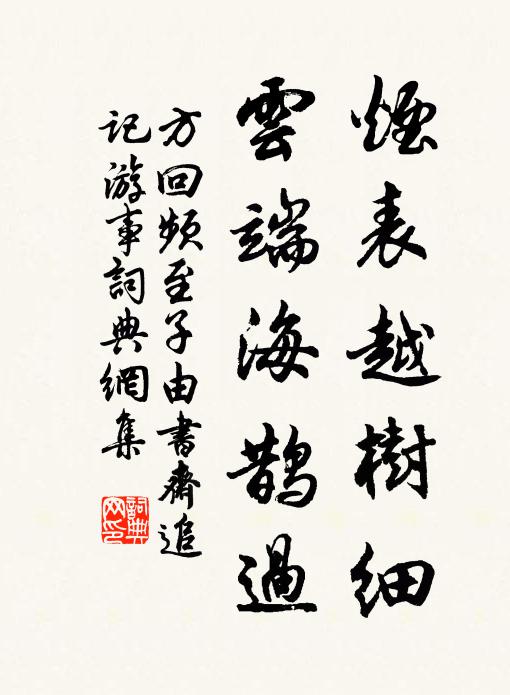 煙表越樹細
雲端海鵲過
方回頻至子由書齋追
記游事詞典網集
詞典
网印